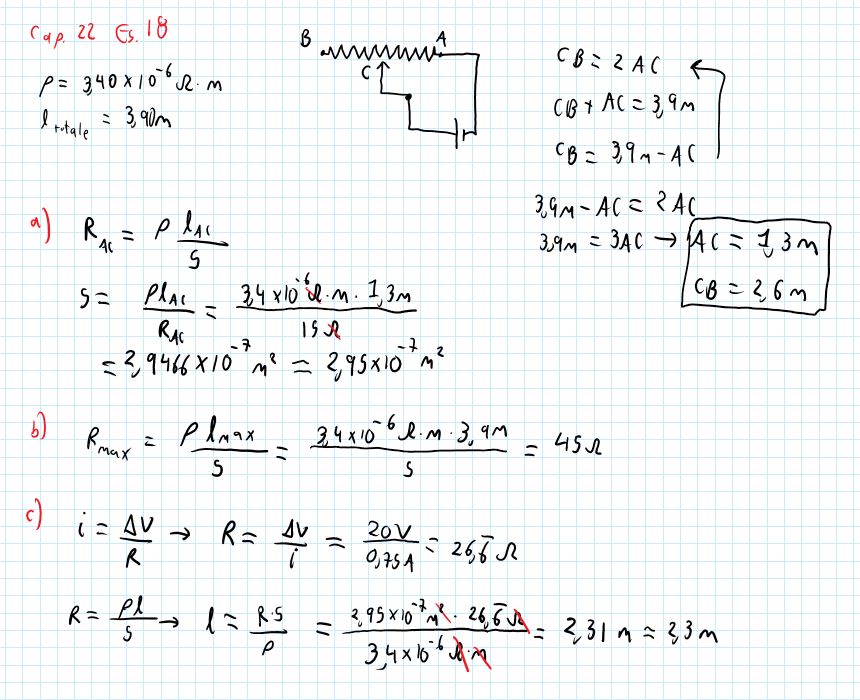 Cap. 22 Es. 18
ρ = 3,40 × 10⁻⁶ Ω · m
l totale = 3,90 m
B A
C
CB = 2 AC
CB + AC = 3,9 m
CB = 3,9 m - AC
3,9 m - AC = 2 AC
3,9 m = 3 AC → AC = 1,3 m
CB = 2,6 m
a) R_AC = ρ l_AC / S
S = ρ l_AC / R_AC = 3,4 × 10⁻⁶ Ω · m · 1,3 m / 15 Ω
= 2,9466 × 10⁻⁷ m² ≈ 2,95 × 10⁻⁷ m²
b) R_max = ρ l_max / S = 3,4 × 10⁻⁶ Ω · m · 3,9 m / S = 45 Ω
c) i = ΔV / R → R = ΔV / i = 20 V / 0,75 A = 26,6̅ Ω
R = ρ l / S → l = R · S / ρ = 2,95 × 10⁻⁷ m² · 26,6̅ Ω / 3,4 × 10⁻⁶ Ω · m = 2,31 m ≈ 2,3 m